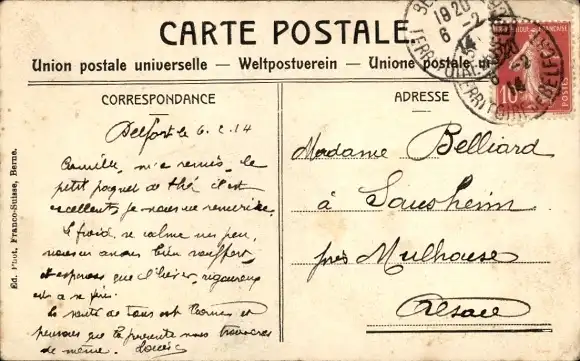 CARTE POSTALE
Union postale universelle — Weltpostverein — Unione postale
CORRESPONDANCE
ADRESSE
Belfort le 6.2.14
Camille m'a remis le
petit paquet de thé il est
excellent je vous remercie.
Le froid se calme un peu,
nous en avons bien souffert
et esperons que l'hiver rigoureux
est a
la santé de tous est bonne et
pensons que la presente vous trouvera
de même.
Madame Belliard
à Sausheim
près Mulhouse
Alsace
Ed. Phot. Franco-Suisse, Berne.
18 20
6 - 2
14
TERRITOIRE DE BELFORT
10
POSTES